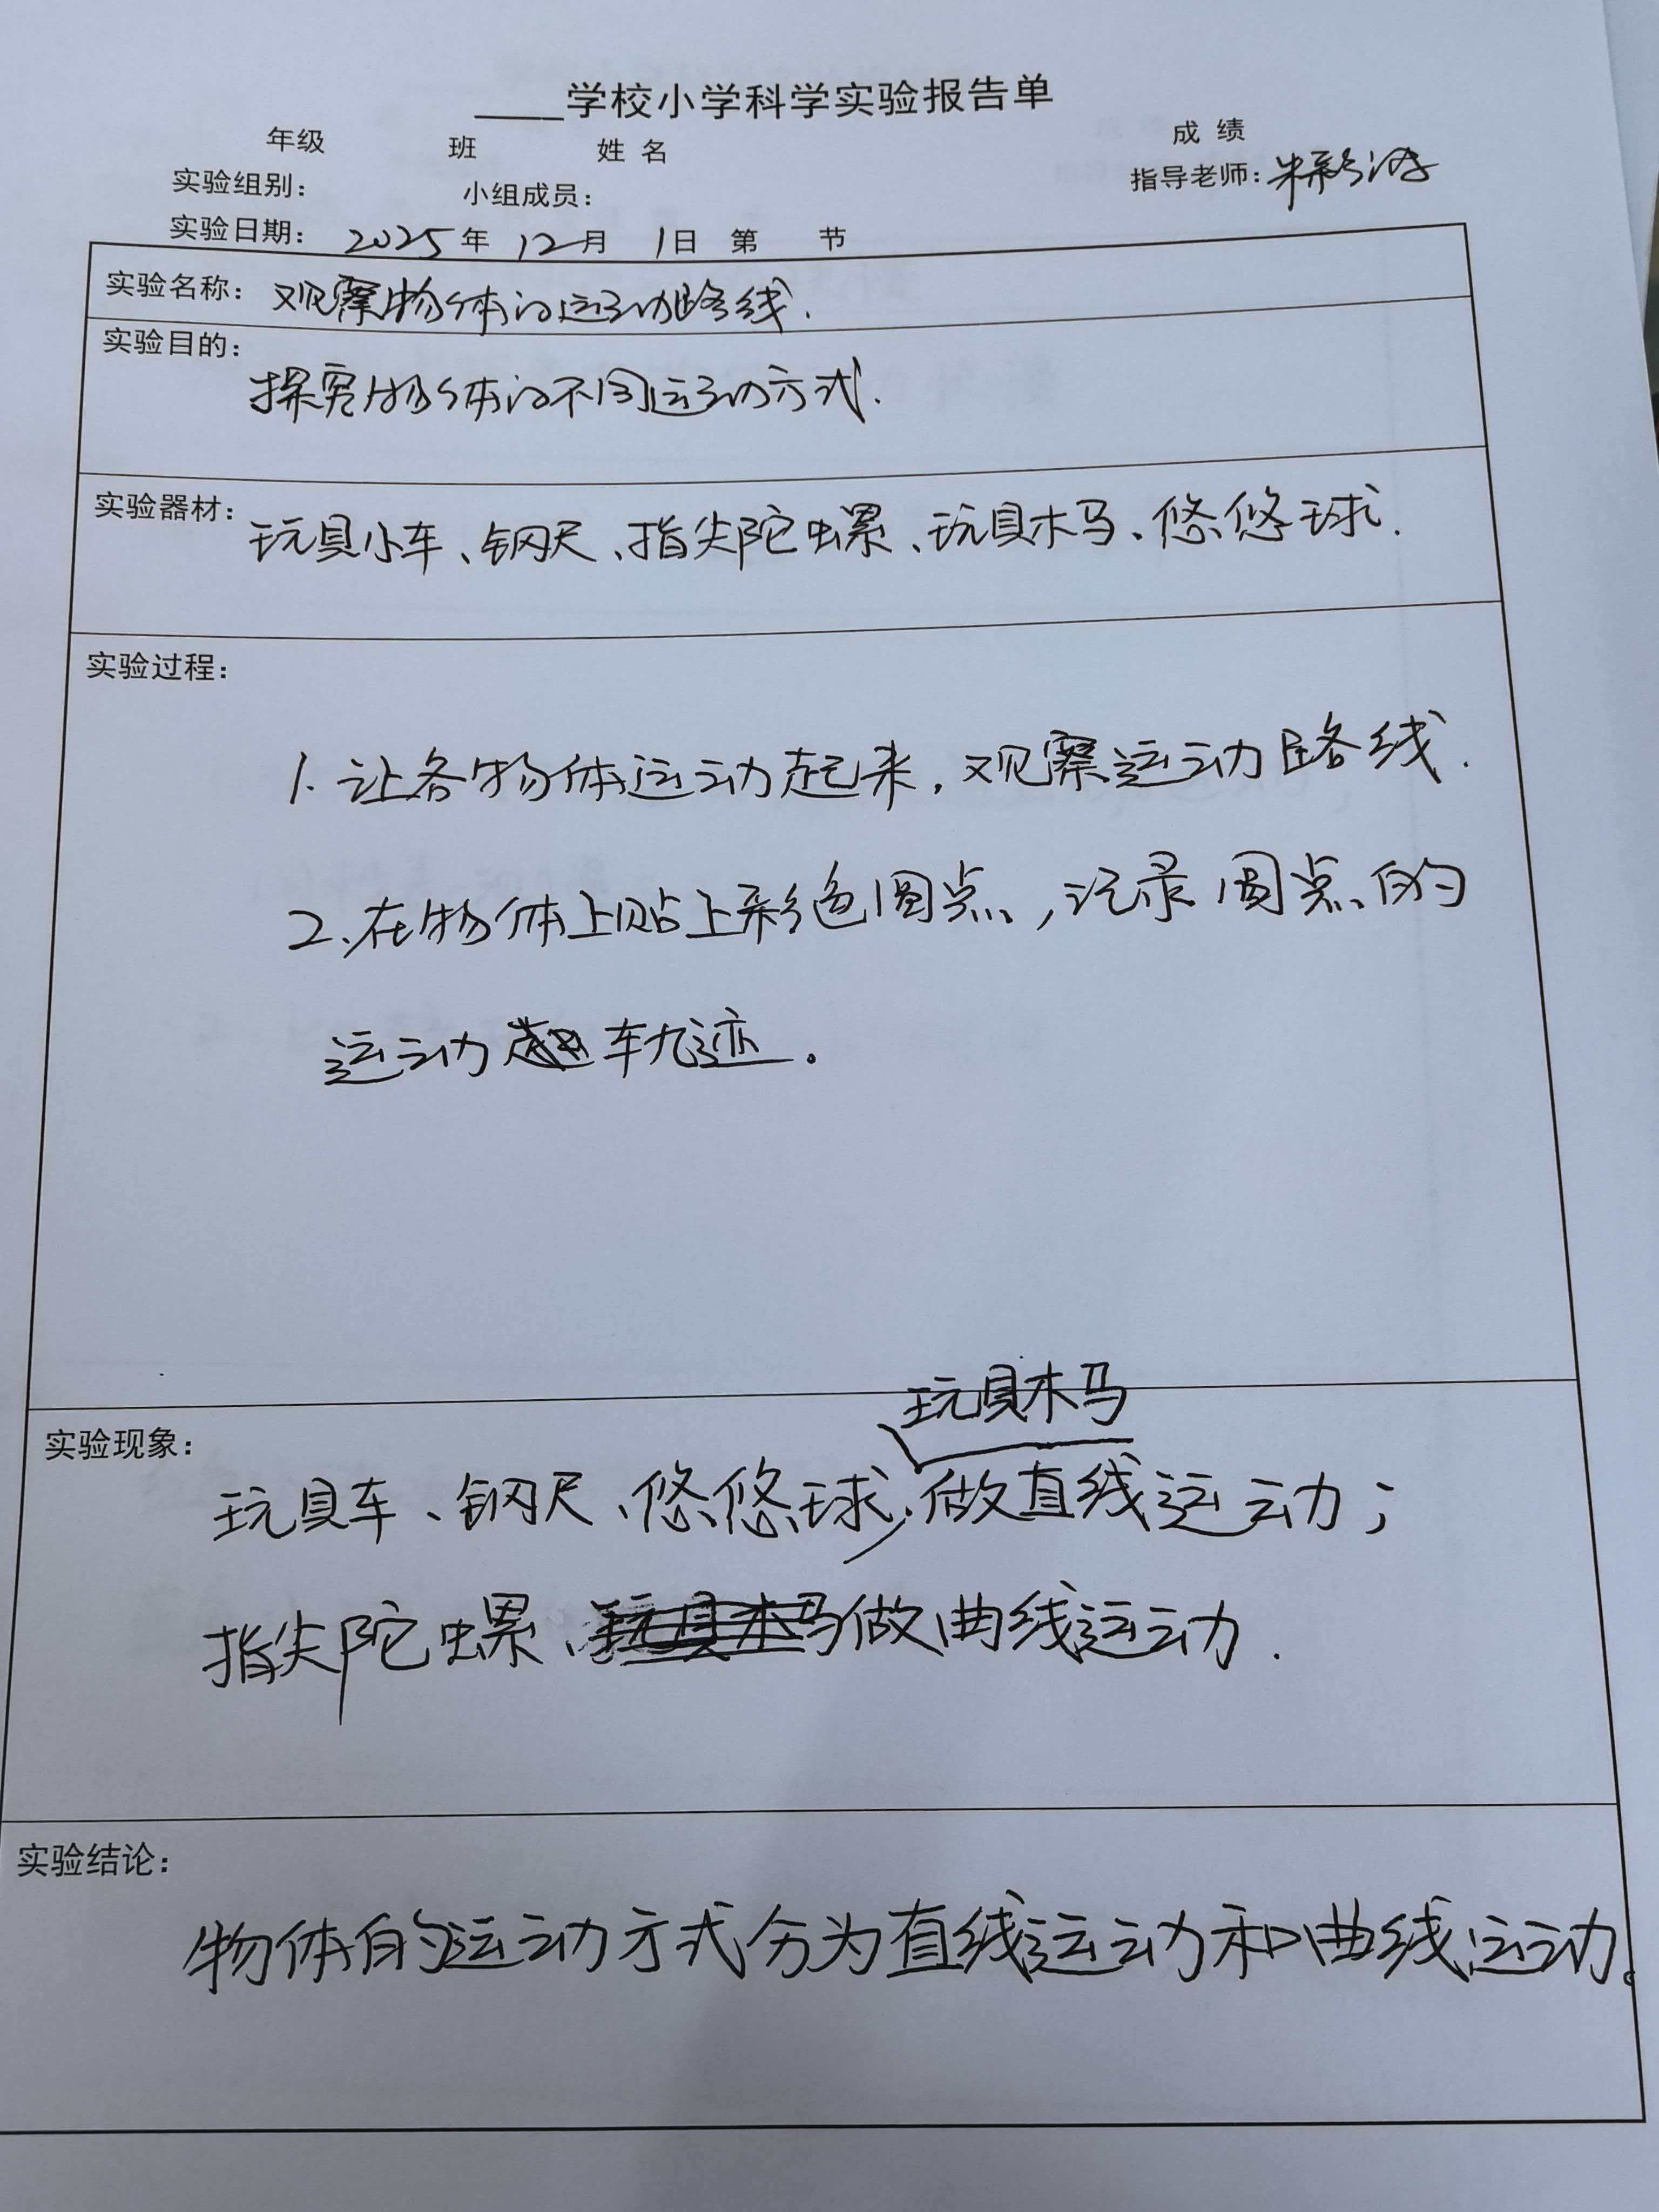 学校小学科学实验报告单
年级 班 姓名 成绩
实验组别： 小组成员： 指导老师：
实验日期： 2025年 12月 1日 第 节
实验名称：观察物体的运动路线.
实验目的：
探究物体的不同运动方式.
实验器材：玩具小车、钢尺、指尖陀螺、玩具木马、悠悠球.
实验过程：
1.让各物体运动起来，观察运动路线.
2.在物体上贴上彩色圆点，记录圆点的
运动轨迹。
玩具木马
实验现象：
玩具车、钢尺、悠悠球、做直线运动；
指尖陀螺、玩具木马做曲线运动.
实验结论：
物体的运动方式分为直线运动和曲线运动。